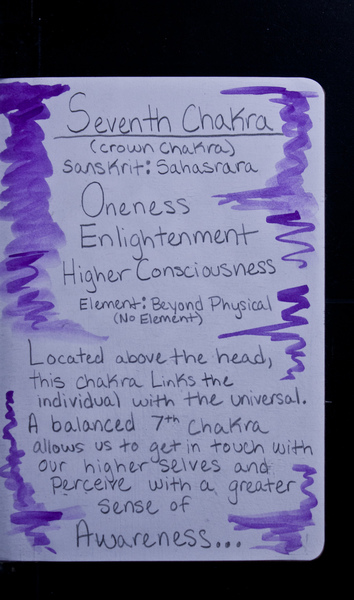 Seventh Chakra
(crown Chakra)
Sanskrit: Sahasrara
Oneness
Enlightenment
Higher Consciousness
Element: Beyond Physical
(No Element)
Located above the head,
this chakra Links the
individual with the universal.
A balanced 7th chakra
allows us to get in touch with
our higher selves and
perceive with a greater
sense of
Awareness...